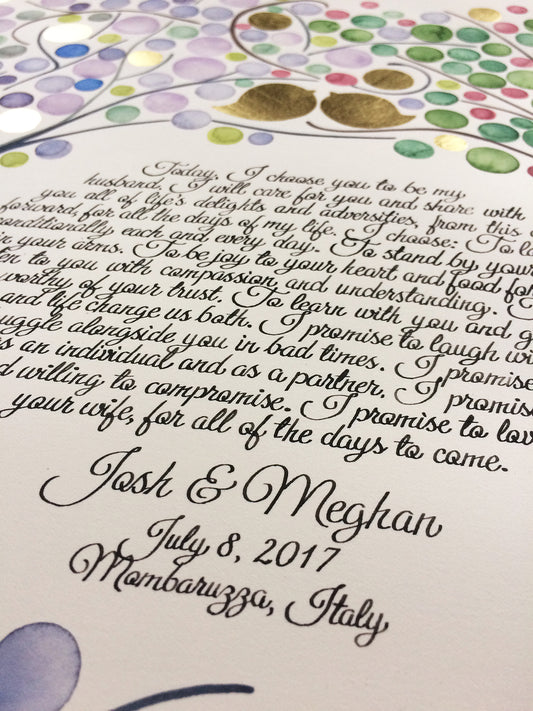 Today, I choose you to be my
husband. I will care for you and share with
you all of life's delights and adversities, from this
forward, for all the days of my life. I choose: To
each and every day. To stand by your
in your arms. To be joy to your heart and food for
to you with compassion and understanding.
worthy of your trust. To learn with you and
and life change us both. I promise to laugh
alongside you in bad times. I promise
as an individual and as a partner. I
willing to compromise. I promise to
your wife, for all of the days to come.
Josh & Meghan
July 8, 2017
Mombaruzza, Italy